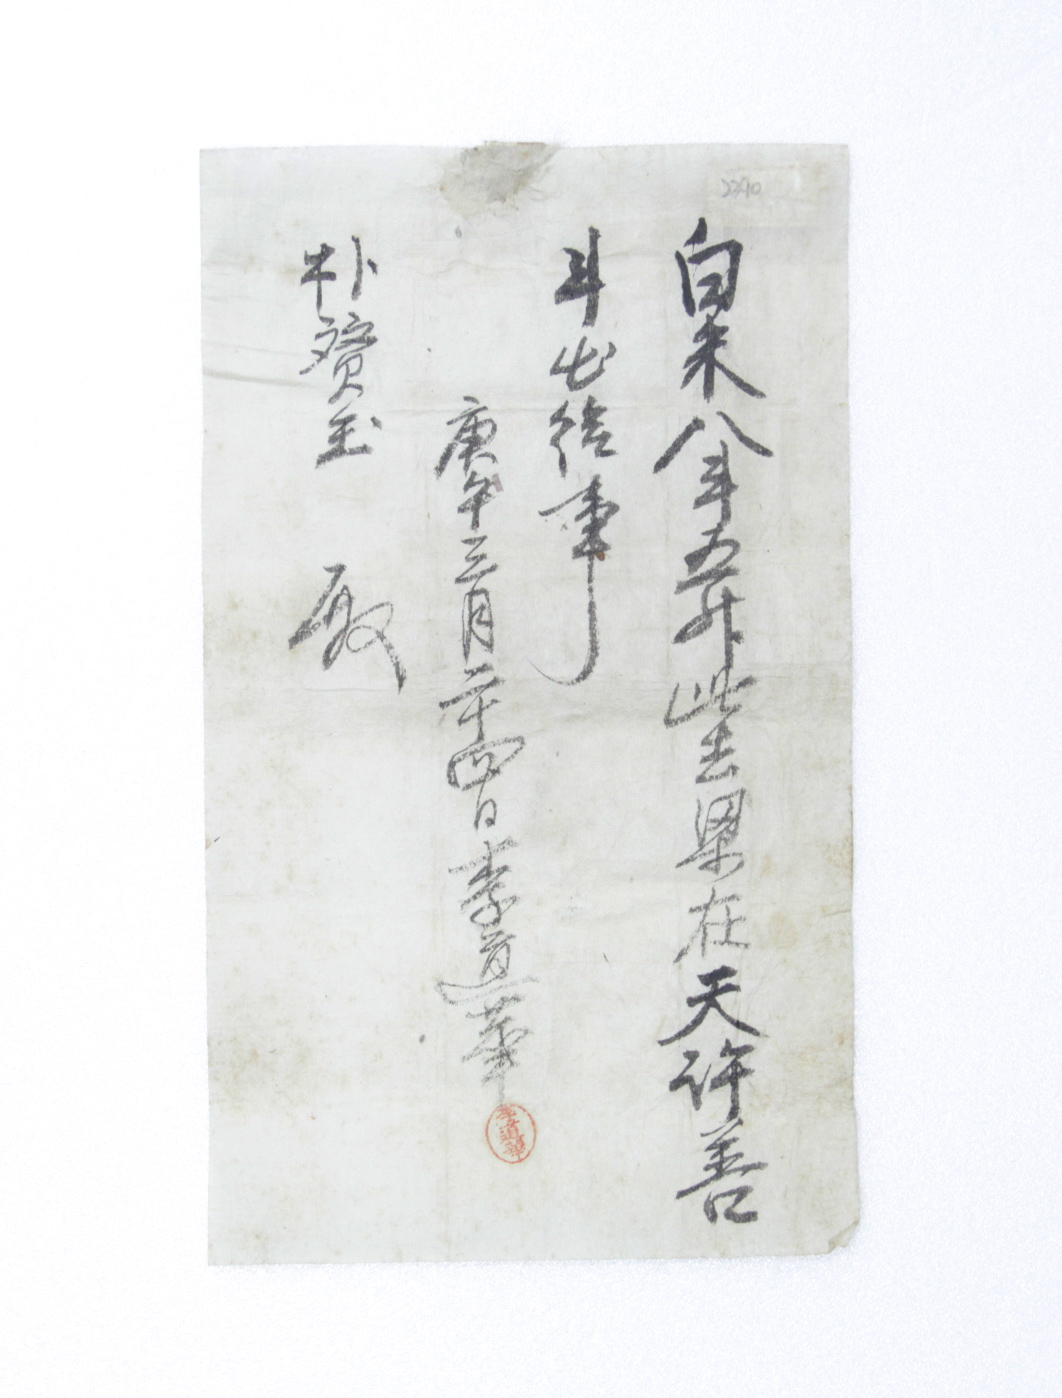 2290
白米八斗五升此去梁在天許善
斗出給事
庚午三月二十四日李道華
李道華
朴贊玉 殿